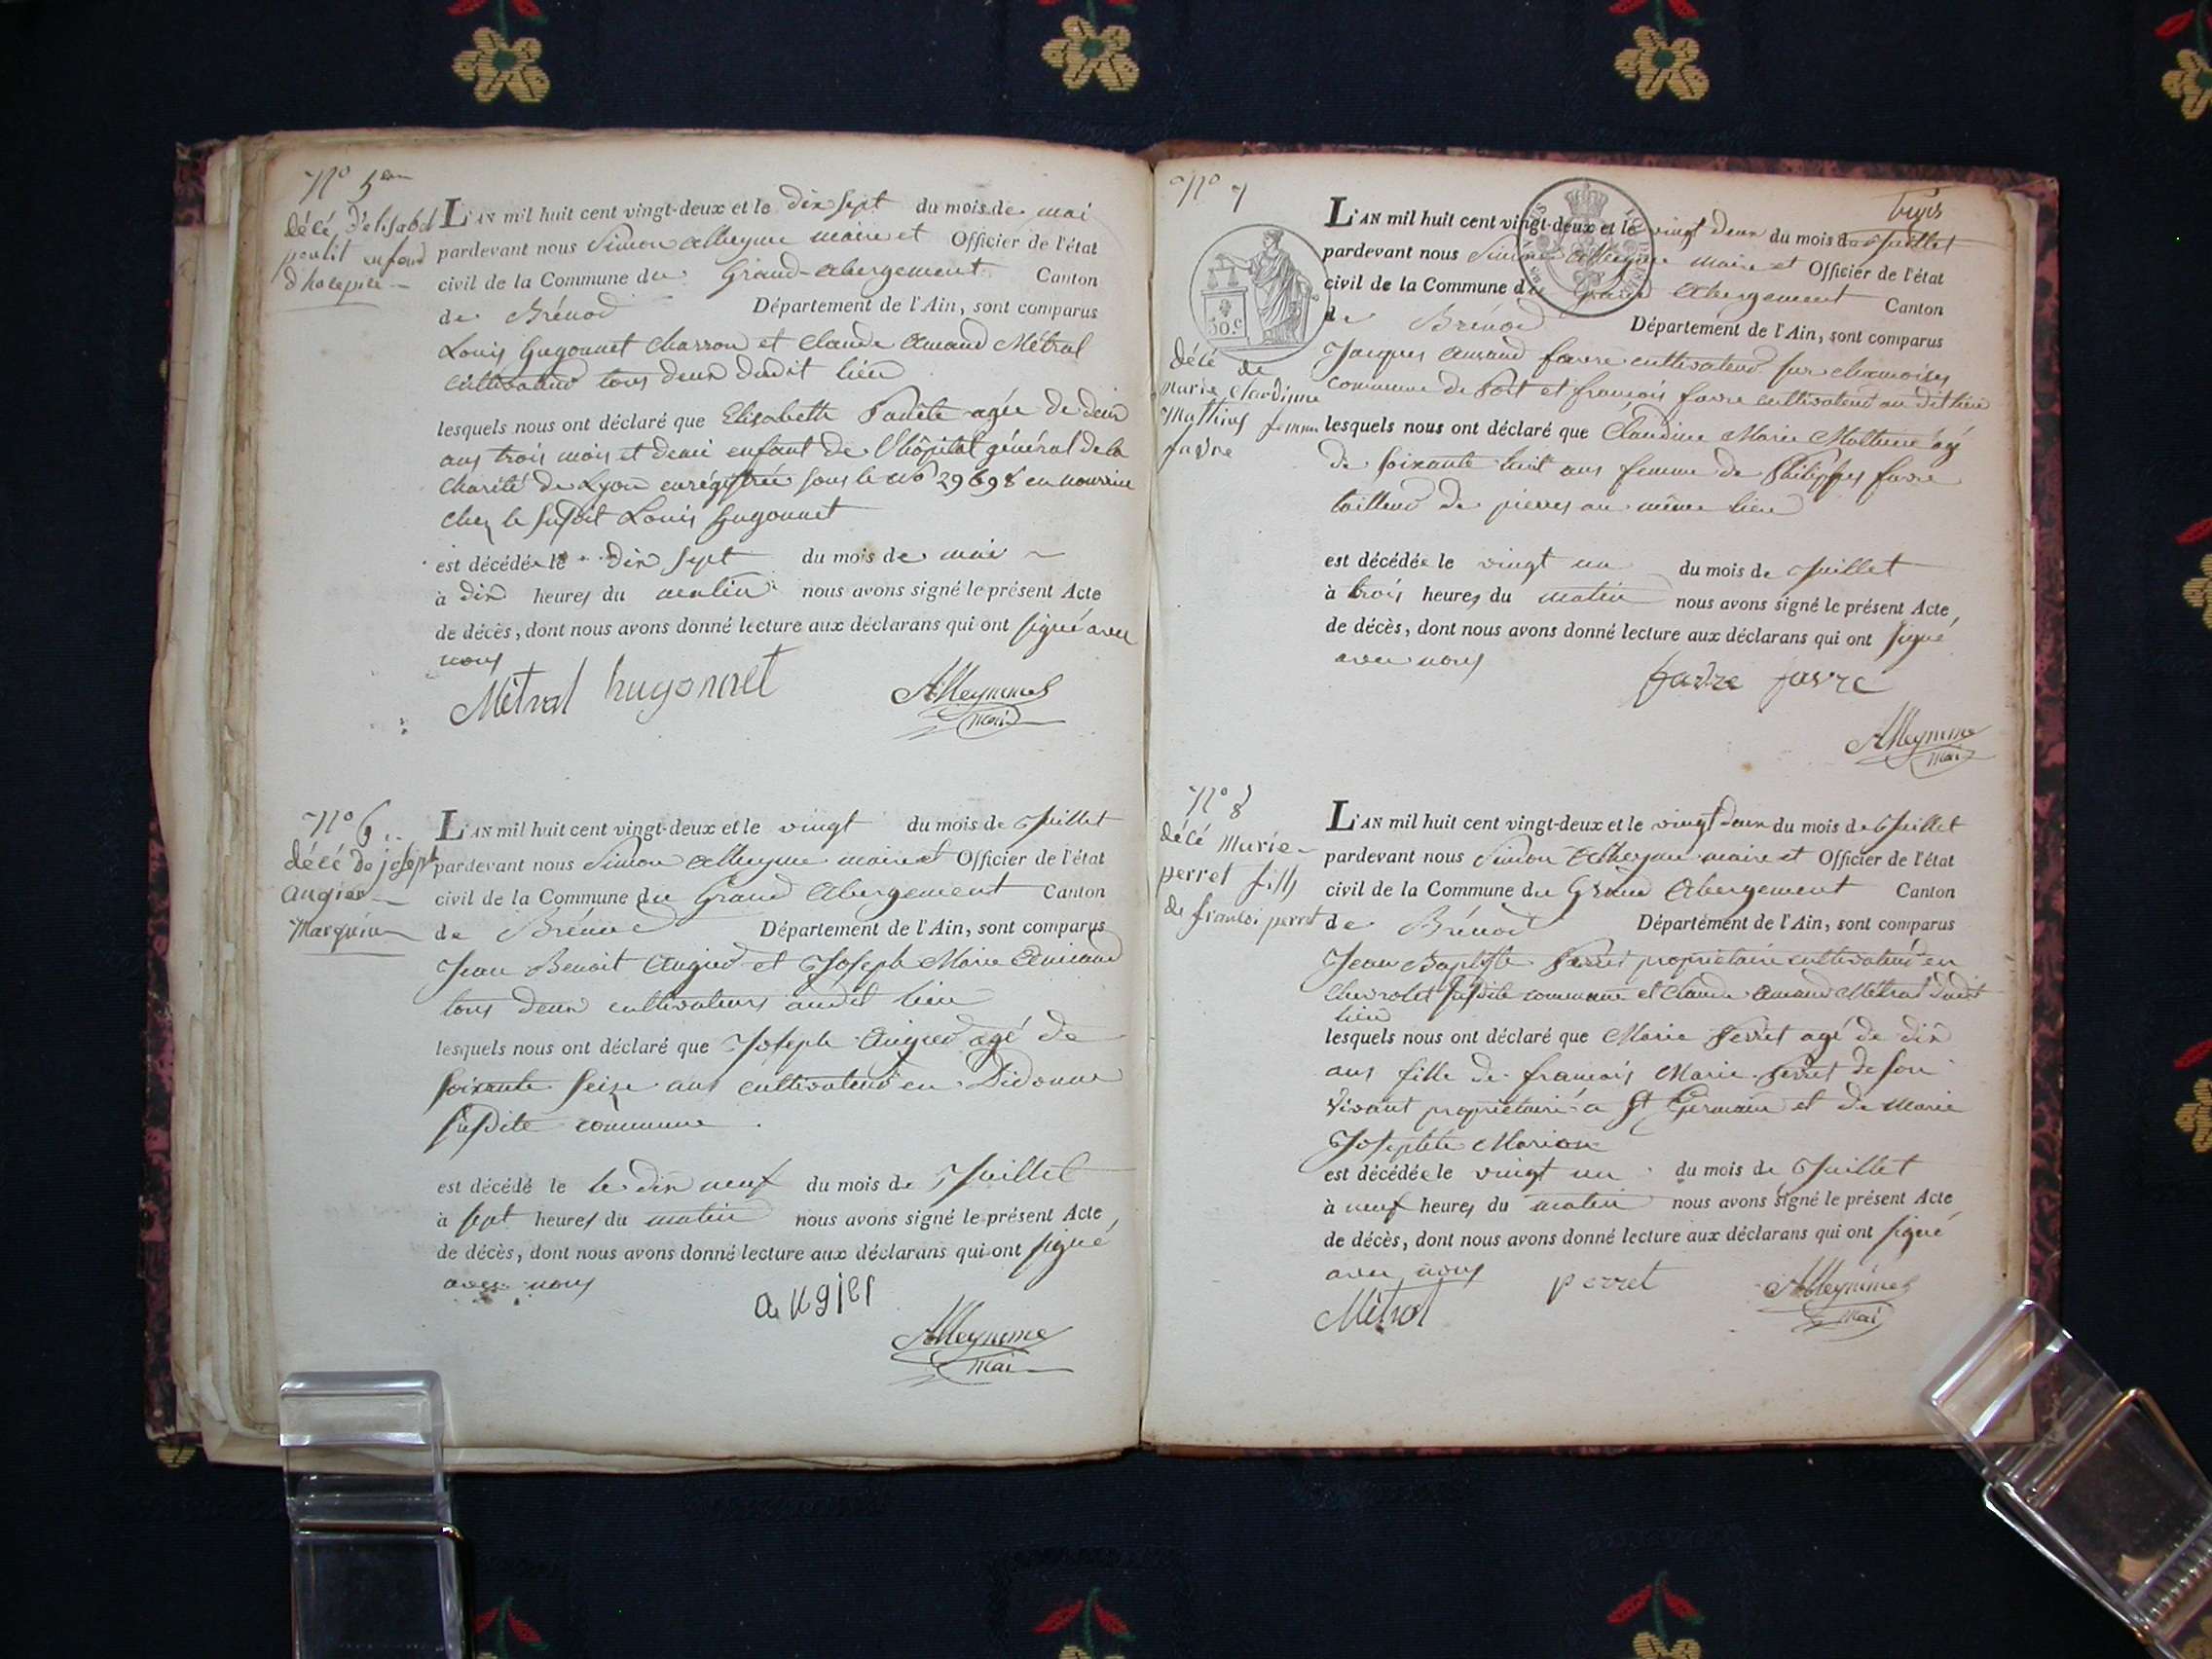 N° 5
décé d'élisabet
poulit enfant
L'AN mil huit cent vingt-deux et le dix sept du mois de mai
pardevant nous Simon maire et Officier de l'état
civil de la Commune du Grand-abergement Canton
de Brénod Département de l'Ain, sont comparus
Louis hugonnet charron et Claude Amand Métral
cultivateur tous deux dudit lieu
lesquels nous ont déclaré que Elisabeth agée de deux
ans trois mois et demi enfant de l'hôpital général de la
charité de Lyon enrégistrée sous le no 29698 en nourrice
chez le susdit Louis hugonnet
est décédée le dix sept du mois de mai
à dix heures du matin nous avons signé le présent Acte
de décès, dont nous avons donné lecture aux déclarans qui ont signé avec
nous
Métral hugonnet
N° 6
décé de joseph
augier
L'AN mil huit cent vingt-deux et le vingt du mois de Juillet
pardevant nous Simon maire et Officier de l'état
civil de la Commune du Grand abergement Canton
de Brénod Département de l'Ain, sont comparus
Jean Benoit Augier et Joseph Marie
tous deux cultivateurs audit lieu
lesquels nous ont déclaré que Joseph Augier agé de
soixante seize ans cultivateur en Didonne
susdite commune
est décédé le le dix neuf du mois de Juillet
à sept heures du matin nous avons signé le présent Acte
de décès, dont nous avons donné lecture aux déclarans qui ont signé
avec nous
augier
N° 7
50.c
décé de
marie clardinne
Mathieu femme
favre
L'AN mil huit cent vingt-deux et le vingt deux du mois de Juillet
pardevant nous Simon maire et Officier de l'état
civil de la Commune du Grand abergement Canton
de Brénod Département de l'Ain, sont comparus
Jacques Amand favre cultivateur sur
commune de Port et françois favre cultivateur au dit lieu
lesquels nous ont déclaré que Claudine Marie agé
de soixante huit ans femme de Philippes favre
tailleur de pierres au même lieu
est décédée le vingt un du mois de Juillet
à trois heures du matin nous avons signé le présent Acte
de décès, dont nous avons donné lecture aux déclarans qui ont signé
avec nous
favre favre
N° 8
décé marie
perret fille
de françoi perret
L'AN mil huit cent vingt-deux et le vingt deux du mois de Juillet
pardevant nous Simon maire et Officier de l'état
civil de la Commune du Grand abergement Canton
de Brénod Département de l'Ain, sont comparus
Jean Baptiste Perret propriétaire cultivateur en
susdite commune et Claude Amand Métral dudit
lieu
lesquels nous ont déclaré que Marie Perret agé de dix
ans fille de françois Marie Perret de son
vivant propriétaire a St Germain et de Marie
Josephte Marion
est décédée le vingt un du mois de Juillet
à neuf heures du matin nous avons signé le présent Acte
de décès, dont nous avons donné lecture aux déclarans qui ont signé
avec nous
Métral perret